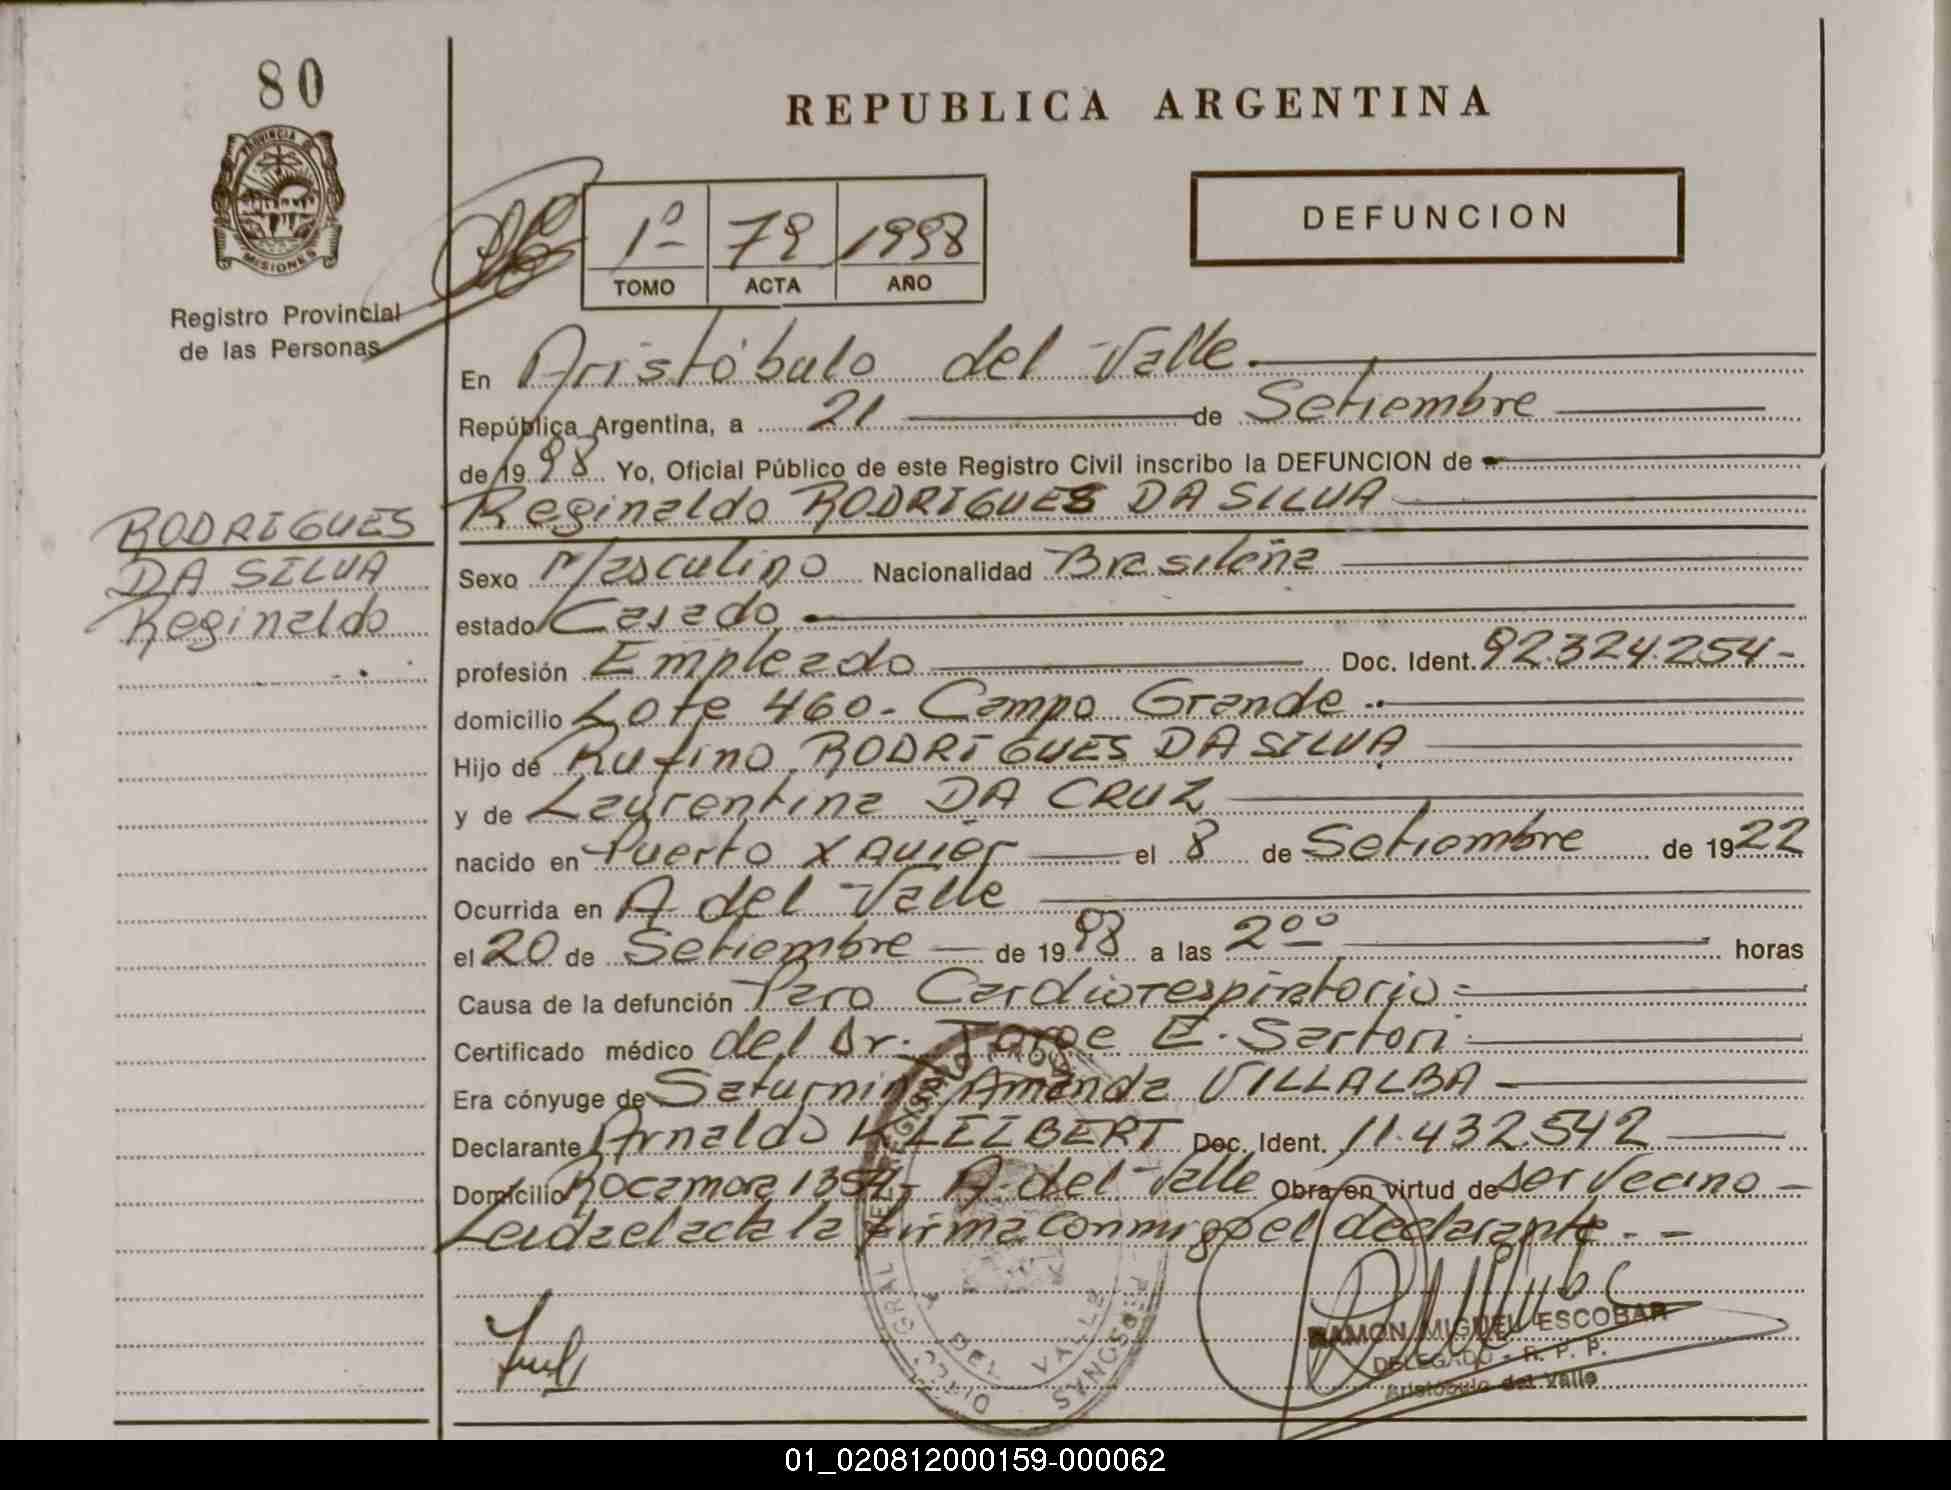 80
REPUBLICA ARGENTINA
PROVINCIA DE
MISIONES
Registro Provincial
de las Personas
1º 79 1998
TOMO ACTA AÑO
DEFUNCION
En Aristóbulo del Valle.
República Argentina, a 21 de Setiembre
de 1998 Yo, Oficial Público de este Registro Civil inscribo la DEFUNCION de
Reginaldo RODRIGUES DA SILVA
RODRIGUES
DA SILVA
Reginaldo
Sexo Masculino Nacionalidad Brasileña
estado Casado
profesión Empleado Doc. Ident. 92.324.254-
domicilio Lote 460- Campo Grande
Hijo de Rufino RODRIGUES DA SILVA
y de Laurentina DA CRUZ
nacido en Puerto Xavier el 8 de Setiembre de 1922
Ocurrida en A del Valle
el 20 de Setiembre de 1998 a las 2ºº horas
Causa de la defunción Paro Cardiorespiratorio
Certificado médico del Dr. Jorge E. Sartori
Era cónyuge de Saturnina Amanda VILLALBA
Declarante Arnaldo Doc. Ident. 11.432.542
Domicilio Rocamora 1354- A. del Valle Obra en virtud de ser vecino
Leida el acta la firma conmigo el declarante
RAMON MIGUEL ESCOBAR
DELEGADO - R. P. P.
Aristóbulo del Valle
A. DEL VALLE
PERSONAS
01_020812000159-000062